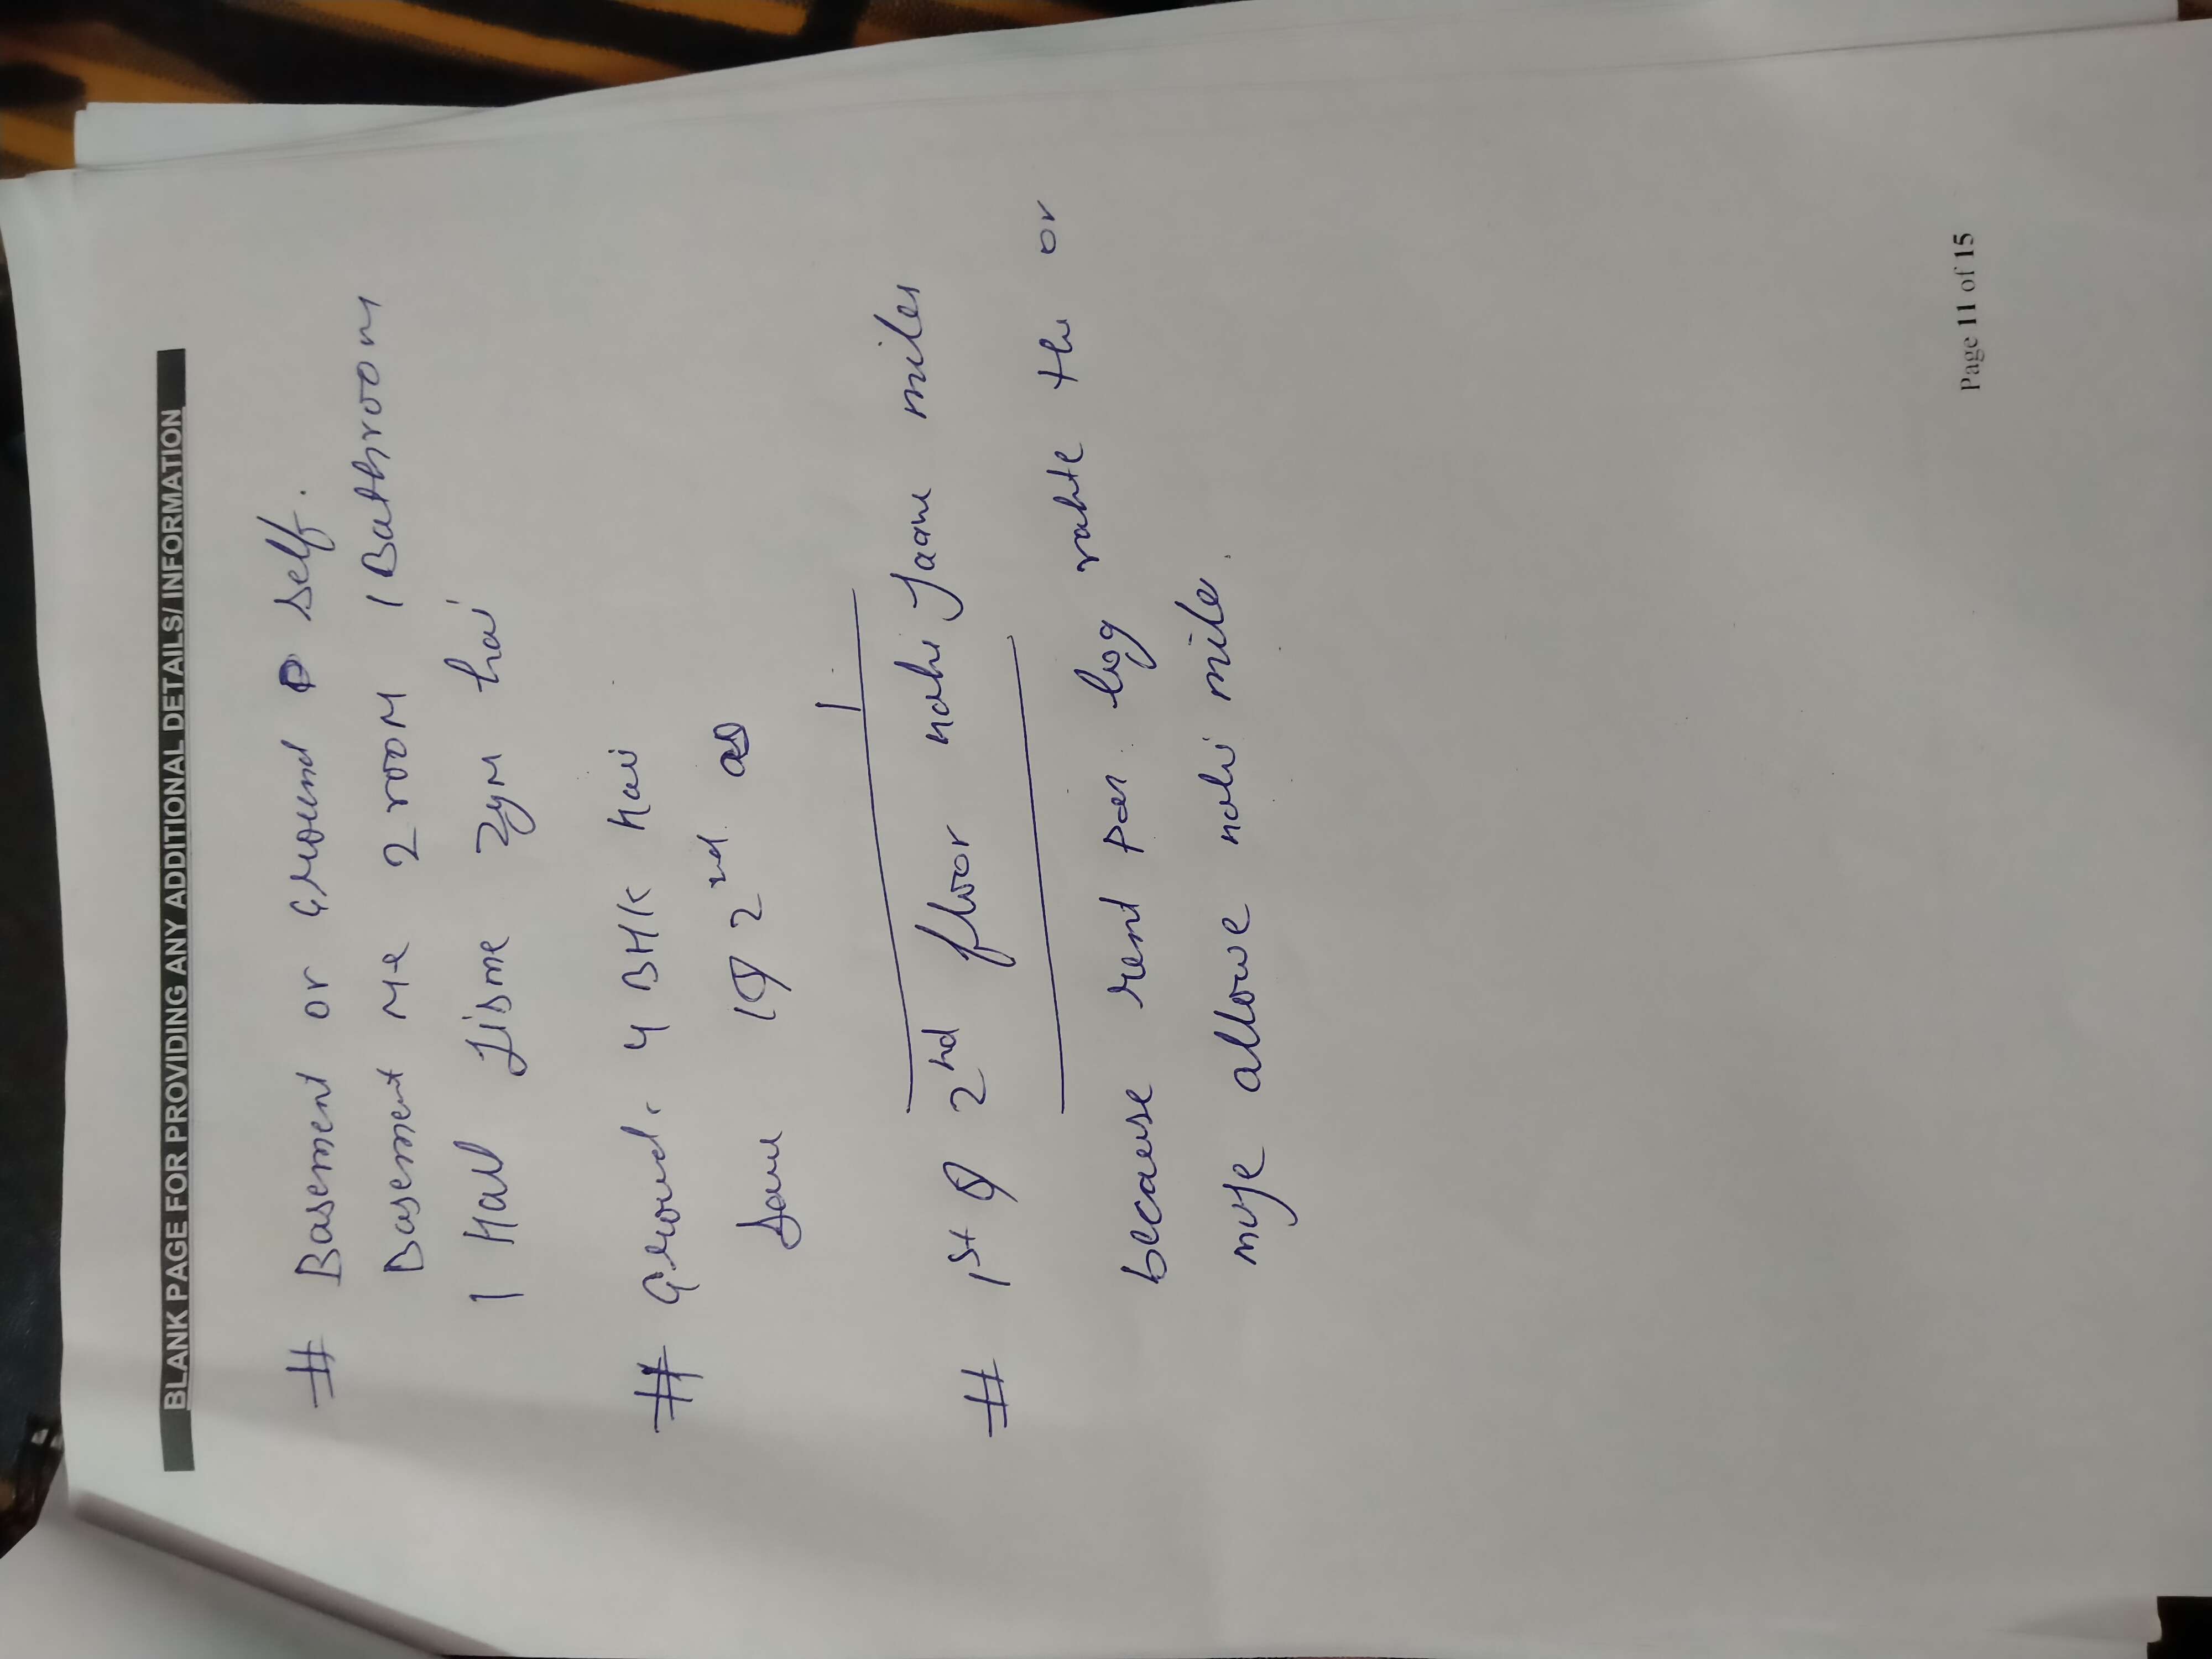 BLANK PAGE FOR PROVIDING ANY ADDITIONAL DETAILS/ INFORMATION
# Basement or Ground self.
Basement Me 2 room 1 Bathroom
1 Hall Jisme Zym hai
# Ground. 4 BHK hai
Same 1 & 2nd as
# 1st & 2nd floor nahi Jaane miles
because rent par log rahte the or
muje allowe nahi mile.
Page 11 of 15